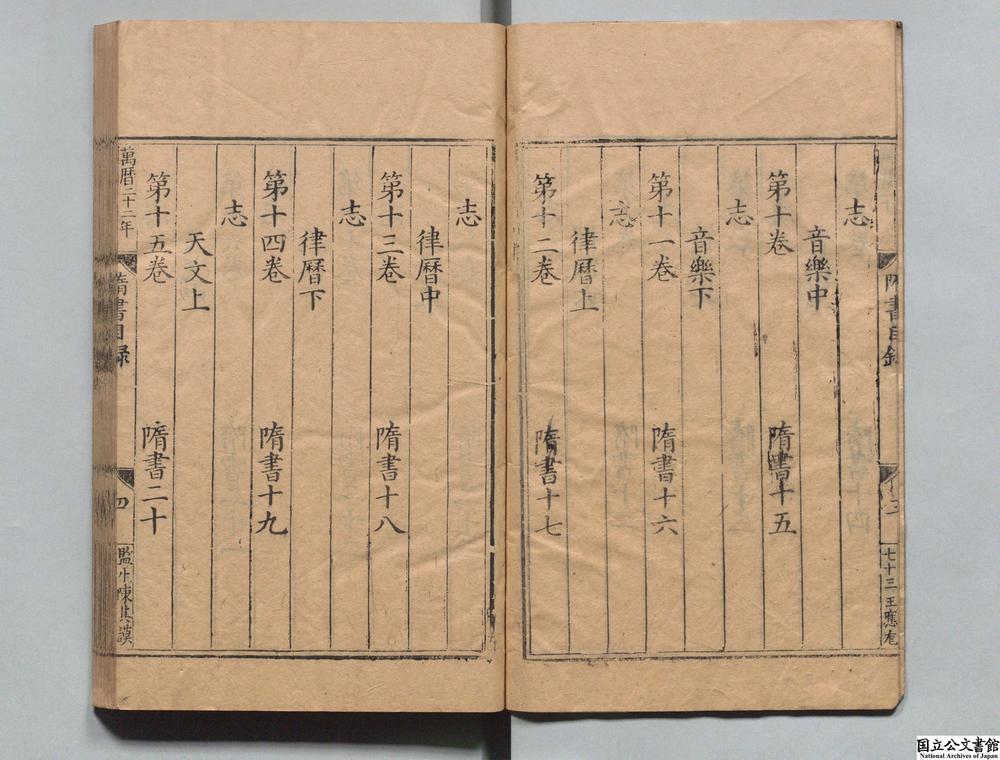 隋書目録
三
七十三 王應
志
音樂中
第十卷 隋書十五
志
音樂下
第十一卷 隋書十六
志
律暦上
第十二卷 隋書十七
志
律暦中
第十三卷 隋書十八
志
律暦下
第十四卷 隋書十九
志
天文上
第十五卷 隋書二十
萬暦二十二年
隋書目録
四
監生陳其謨
国立公文書館
National Archives of Japan